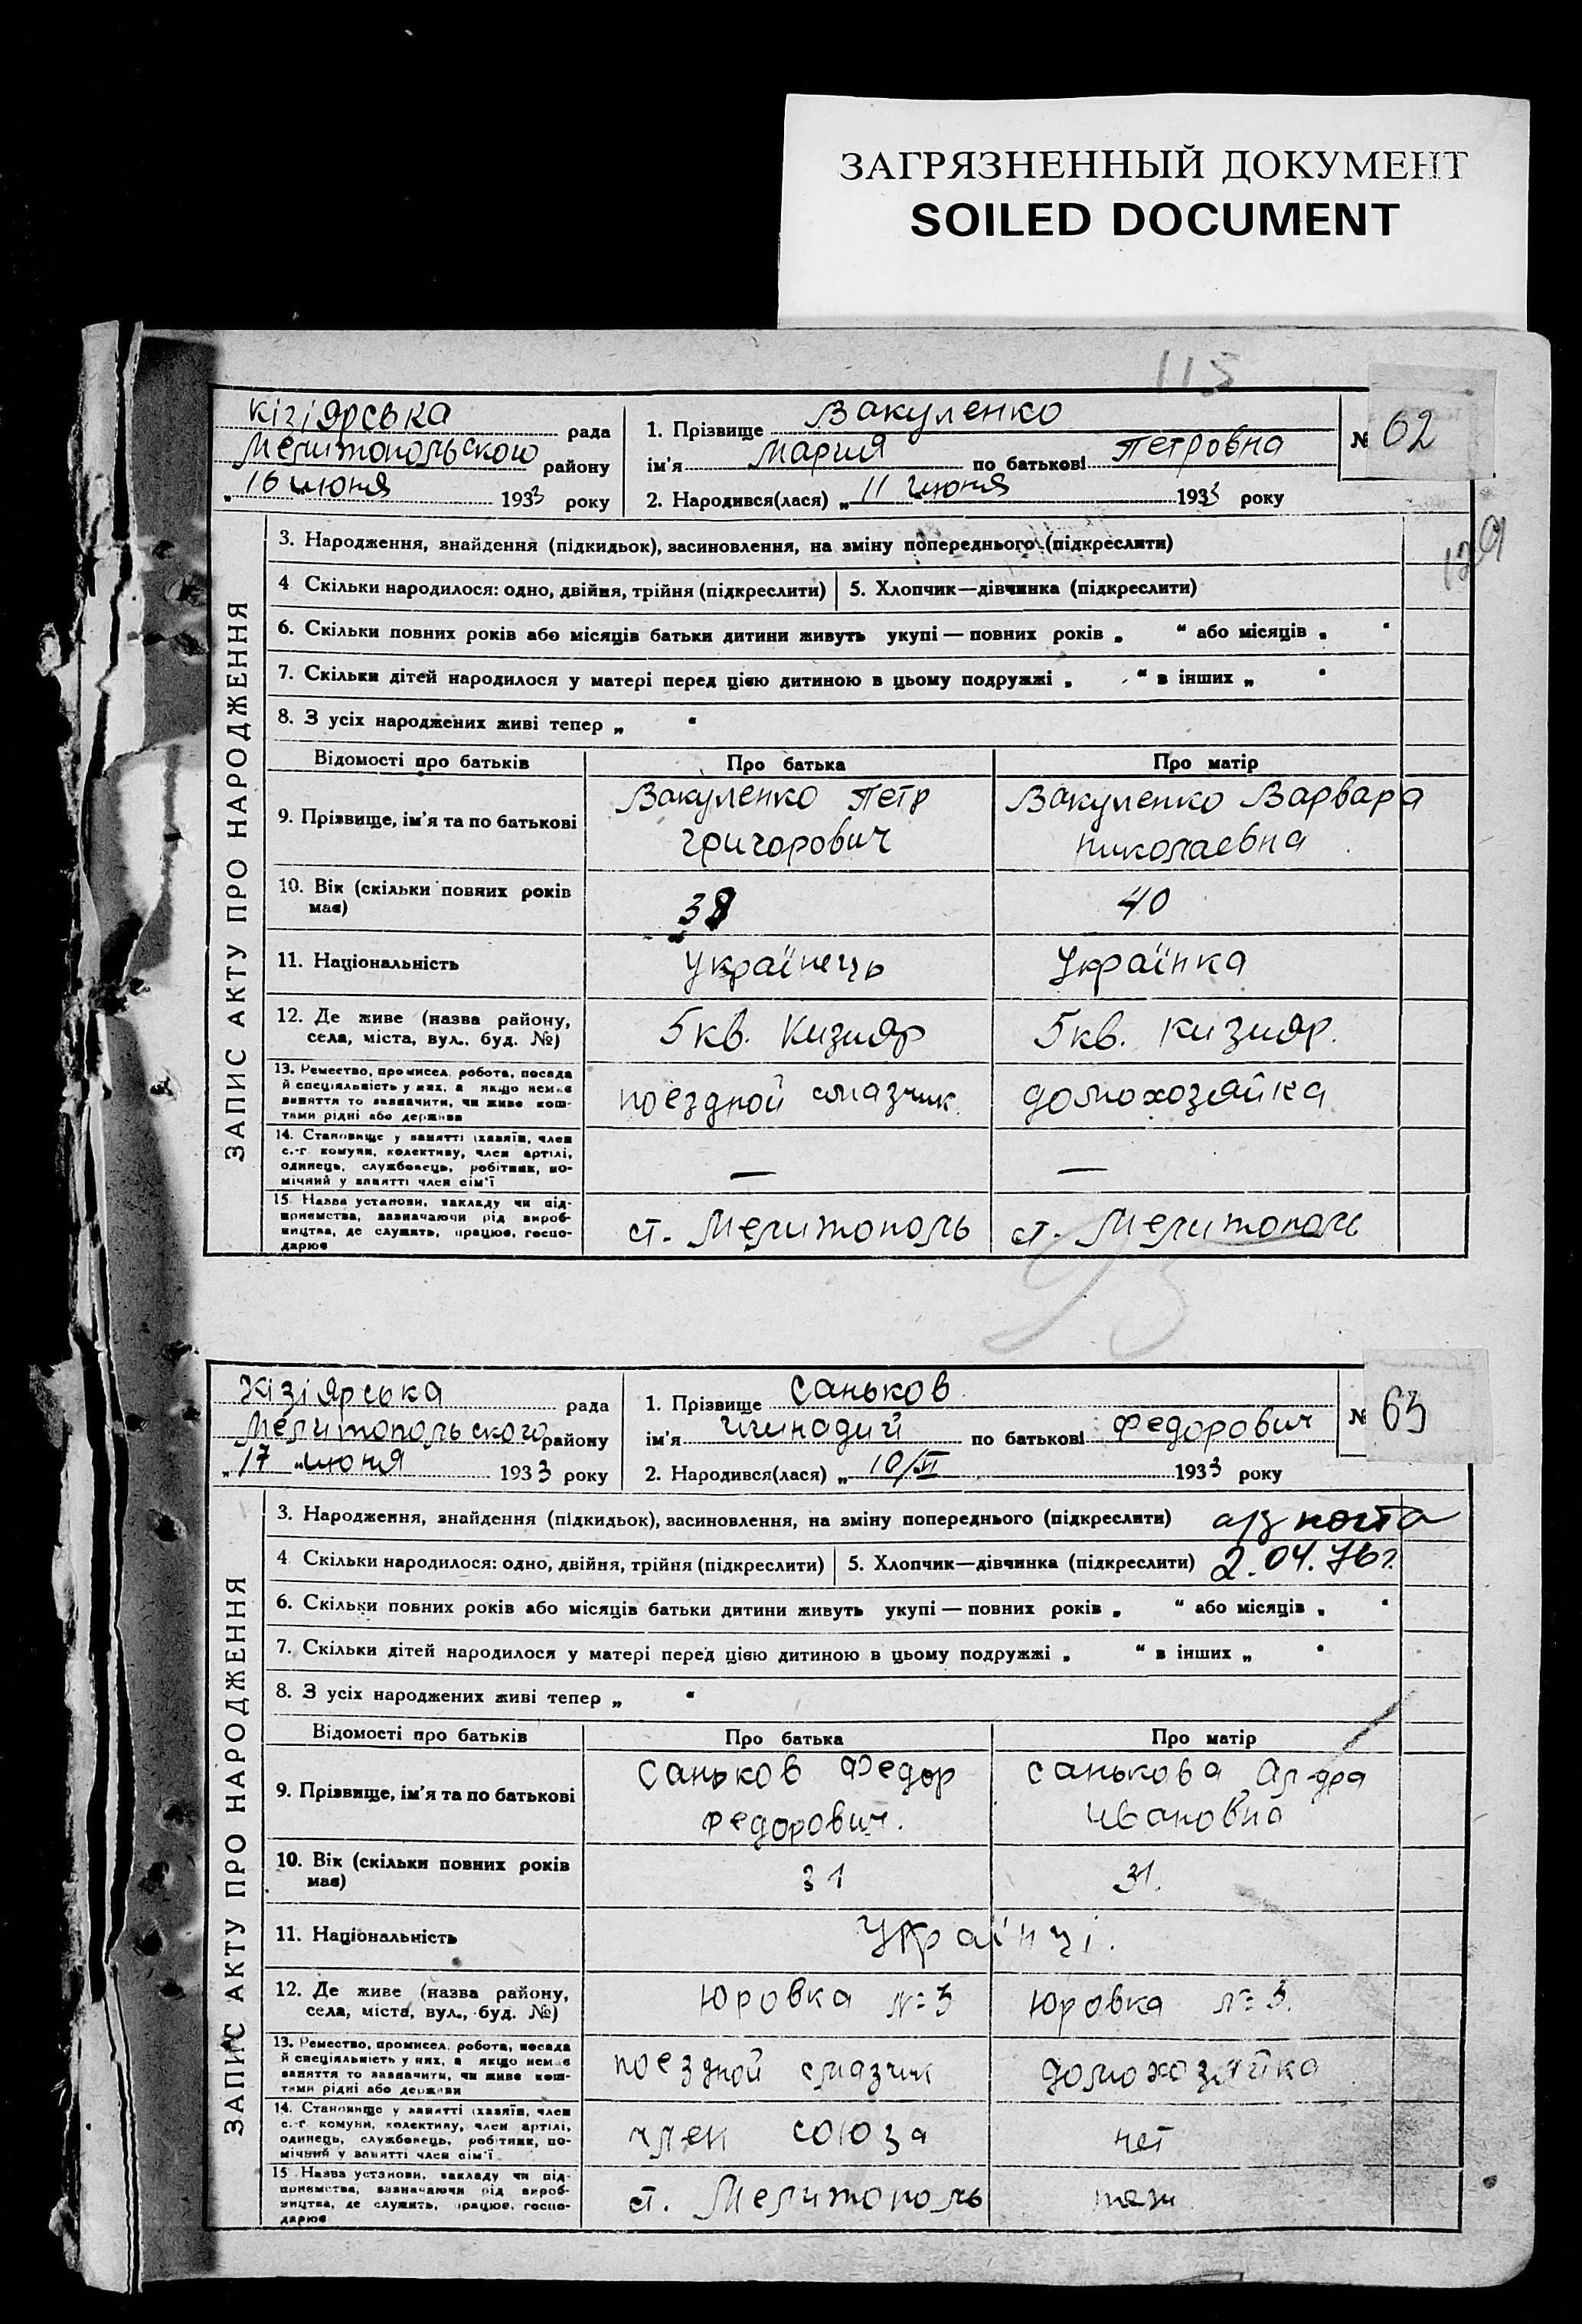 ЗАГРЯЗНЕННЫЙ ДОКУМЕНТ
SOILED DOCUMENT
115
Кізіярська рада
Мелитопольского району
„16 июня 1933 року
1. Прізвище Вакуленко
ім'я Мария по батькові Петровна
2. Народився(лася) „11 июня 1933 року
№ 62
129
ЗАПИС АКТУ ПРО НАРОДЖЕННЯ
3. Народження, знайдення (підкидьок), засиновлення, на зміну попереднього (підкреслити)
4 Скільки народилося: одно, двійня, трійня (підкреслити) 5. Хлопчик—дівчинка (підкреслити)
6. Скільки повних років або місяців батьки дитини живуть укупі — повних років „ “ або місяців „ “
7. Скільки дітей народилося у матері перед цією дитиною в цьому подружжі „ “ в інших „ “
8. З усіх народжених живі тепер „ “
Відомості про батьків Про батька Про матір
9. Прізвище, ім'я та по батькові
Вакуленко Петр
Григорович
Вакуленко Варвара
Николаевна
10. Вік (скільки повних років
має)
38
40
11. Національність
Українець
Українка
12. Де живе (назва району,
села, міста, вул., буд. №)
5 кв. Кизияр
5 кв. Кизияр.
13. Ремество, промисел, робота, посада
й спеціяльність у них, а якщо немає
заняття то зазначити, чи живе кош-
тами рідні або держави
поездной смазчик
домохозяйка
14. Становище у занятті (хазяїн, член
с.-г. комуни, колективу, член артілі,
одинець, службовець, робітник, по-
мічний у занятті член сім'ї
—
—
15. Назва установи, закладу чи під-
приємства, зазначаючи рід вироб-
ництва, де служить, працює, госпо-
дарює
ст. Мелитополь
ст. Мелитополь
Кізіярська рада
Мелитопольского району
„17 „июня 1933 року
1. Прізвище Саньков
ім'я по батькові Федорович
2. Народився(лася) „10/VI 1933 року
№ 63
ЗАПИС АКТУ ПРО НАРОДЖЕННЯ
3. Народження, знайдення (підкидьок), засиновлення, на зміну попереднього (підкреслити)
4 Скільки народилося: одно, двійня, трійня (підкреслити) 5. Хлопчик—дівчинка (підкреслити) 2.04.76г.
6. Скільки повних років або місяців батьки дитини живуть укупі — повних років „ “ або місяців „ “
7. Скільки дітей народилося у матері перед цією дитиною в цьому подружжі „ “ в інших „ “
8. З усіх народжених живі тепер „ “
Відомості про батьків Про батька Про матір
9. Прізвище, ім'я та по батькові
Саньков Федор
Федорович.
Санькова Ал-дра
Ивановна
10. Вік (скільки повних років
має)
31
31.
11. Національність
Українці.
12. Де живе (назва району,
села, міста, вул., буд. №)
Юровка № 3
Юровка № 3.
13. Ремество, промисел, робота, посада
й спеціяльність у них, а якщо немає
заняття то зазначити, чи живе кош-
тами рідні або держави
поездной смазчик
домохозяйка
14. Становище у занятті (хазяїн, член
с.-г. комуни, колективу, член артілі,
одинець, службовець, робітник, по-
мічний у занятті член сім'ї
член союза
нет
15. Назва установи, закладу чи під-
приємства, зазначаючи рід вироб-
ництва, де служить, працює, госпо-
дарює
ст. Мелитополь